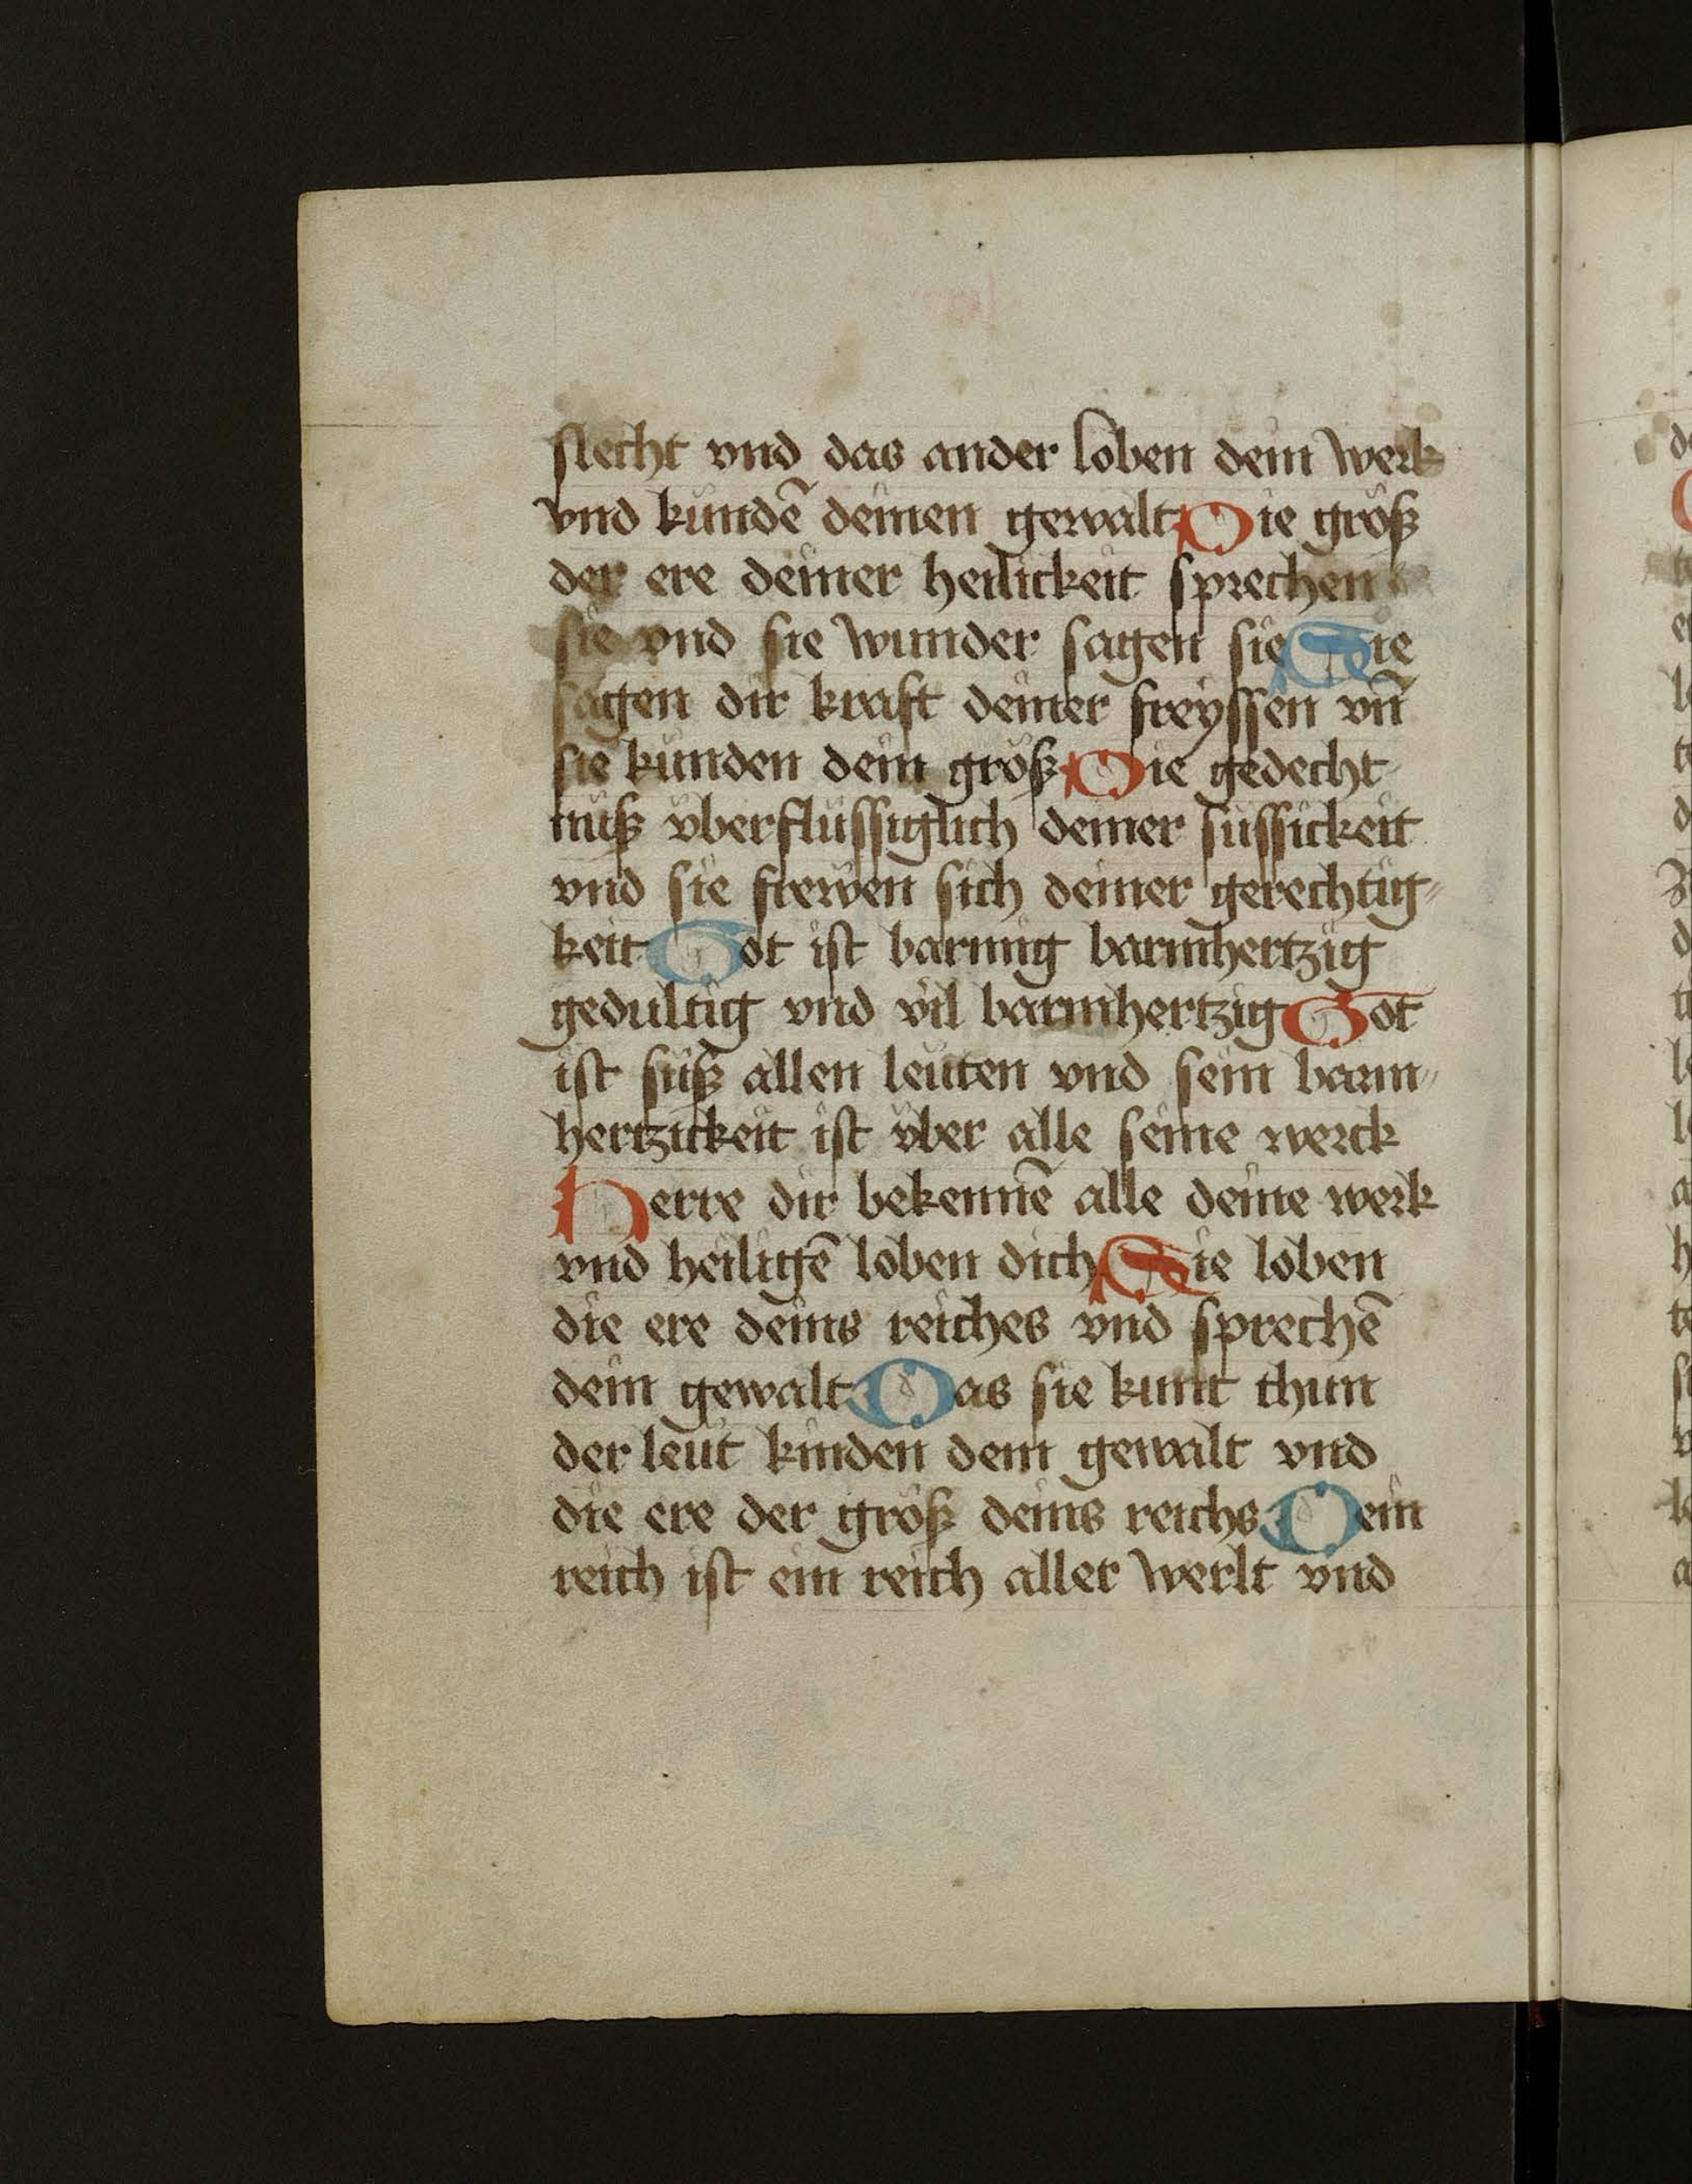 slecht vnd das ander loben dein werk
vnd kündē deinen gewalt Die größ
der ere deiner heilickeit sprechen
sie vnd sie wunder sagen sie Sie
sagen dir kraft deiner freyssen vn̄
sie künden dein größ Die gedecht
nüß vberflüssiglich deiner süssickeit
vnd sie frewen sich deiner gerechtig⸗
keit Got ist barmig barmhertzig
gedultig vnd vil barmhertzig Got
ist süß allen leüten vnd sein barm⸗
hertzickeit ist über alle seine werck
Herre dir bekennē alle deine werk
vnd heiligē loben dich Sie loben
die ere deins reiches vnd sprechē
dein gewalt Das sie kunt thun
der leüt kinden dein gewalt vnd
die ere der größ deins reichs Dein
reich ist ein reich aller werlt vnd